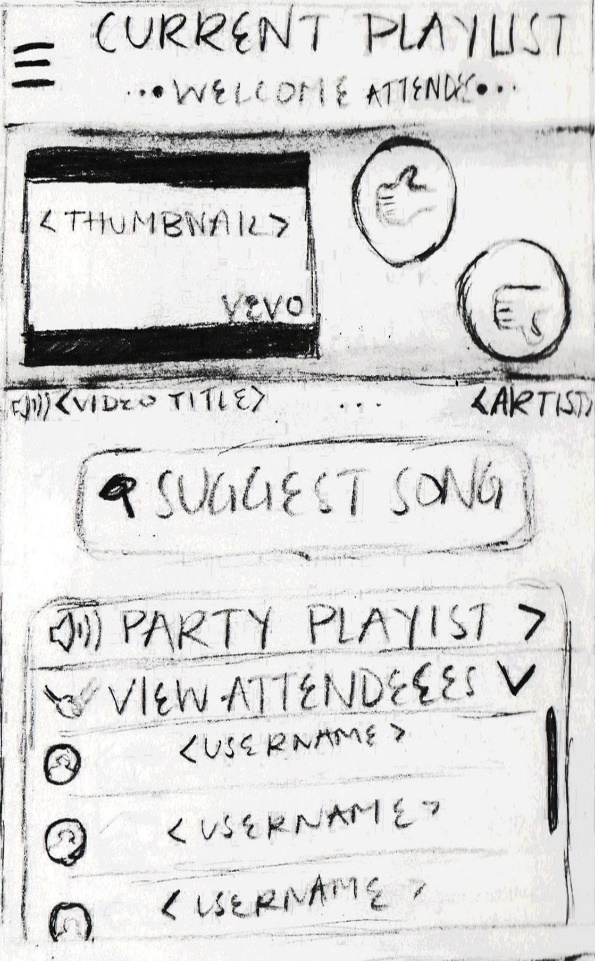 CURRENT PLAYLIST
···WELCOME ATTENDEE···
<THUMBNAIL>
VEVO
<VIDEO TITLE> ... <ARTIST>
SUGGEST SONG
PARTY PLAYLIST >
VIEW ATTENDEEES
<USERNAME>
<USERNAME>
<USERNAME>